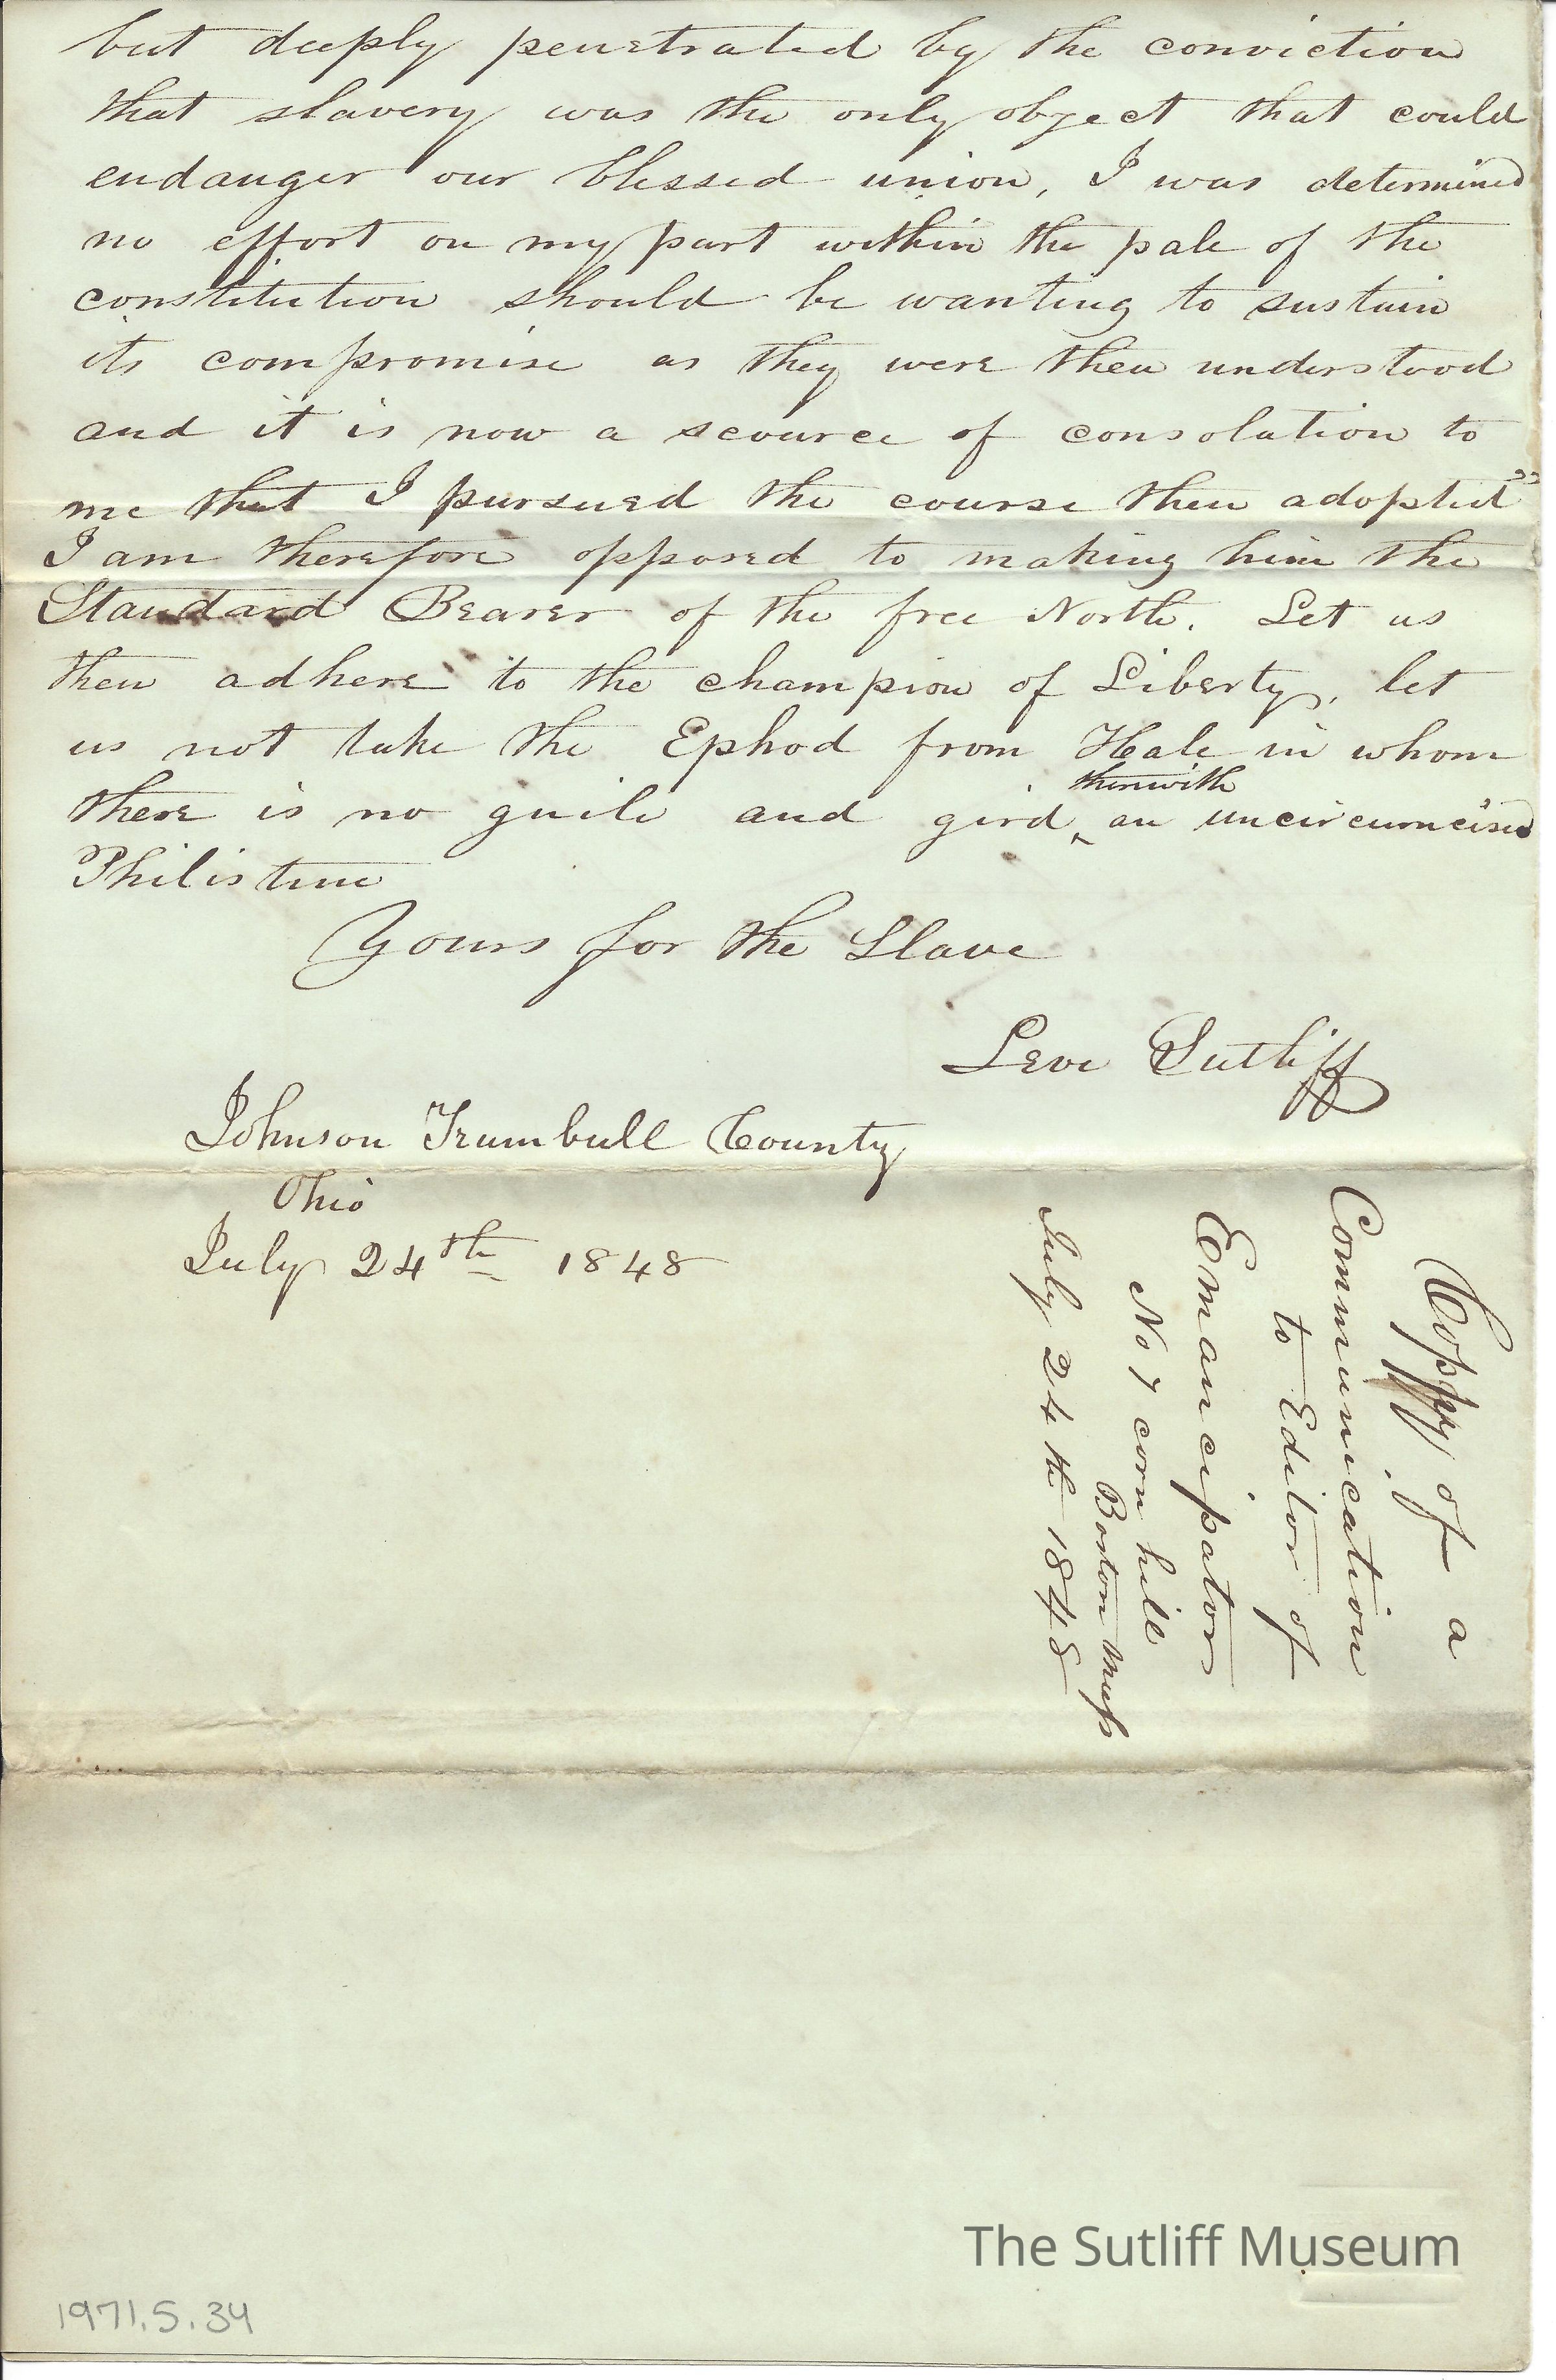 but deeply penetrated by the conviction
that slavery was the only object that could
endanger our blessed union, I was determined
no effort on my part within the pale of the
constitution should be wanting to sustain
its compromise as they were then understood
and it is now a scource of consolation to
me that I pursued the course then adopted"
I am therefore opposed to making him the
Standard Bearer of the free North. Let us
then adhere to the champion of Liberty, let
us not take the Ephod from Hale in whom
therewith
there is no guile and gird ‸ an uncircumcised
Philistine
Yours for the Slave
Levi Sutliff
Johnson Trumbull County
Ohio
July 24th 1848
Coppy of a
Communication
to Editor of
Emancipator
No 7 corn hill
Boston Mass
July 24th 1848
The Sutliff Museum
1971.5.34